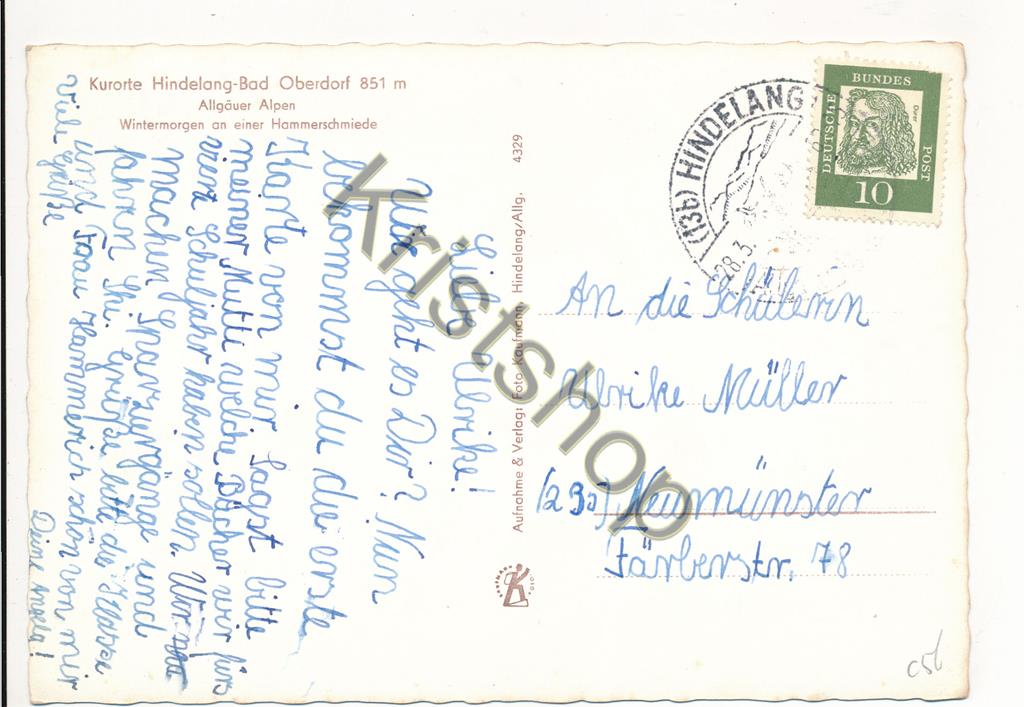 Kurorte Hindelang-Bad Oberdorf 851 m
Allgäuer Alpen
Wintermorgen an einer Hammerschmiede
Liebe Ulrike!
Wie geht es Dir? Nun
bekommst du die erste
Karte von mir. Sagst bitte
meiner Mutti welche Bücher wir fürs
vierte Schuljahr haben sollen. Wir
machen Spaziergänge und
fahren Ski. Grüße bitte die Klasse
und Frau Hammerich schön von mir
Viele Grüße
Deine Angela!
4329
Aufnahme & Verlag: Foto-Kaufmann, Hindelang/Allg.
KAUFMANN FOTO
(13b) HINDELANG
28.3.
DEUTSCHE BUNDESPOST
Dürer
10
An die Schülerin
Ulrike Müller
(23) Neumünster
Färberstr. 78
c51
Kristshop